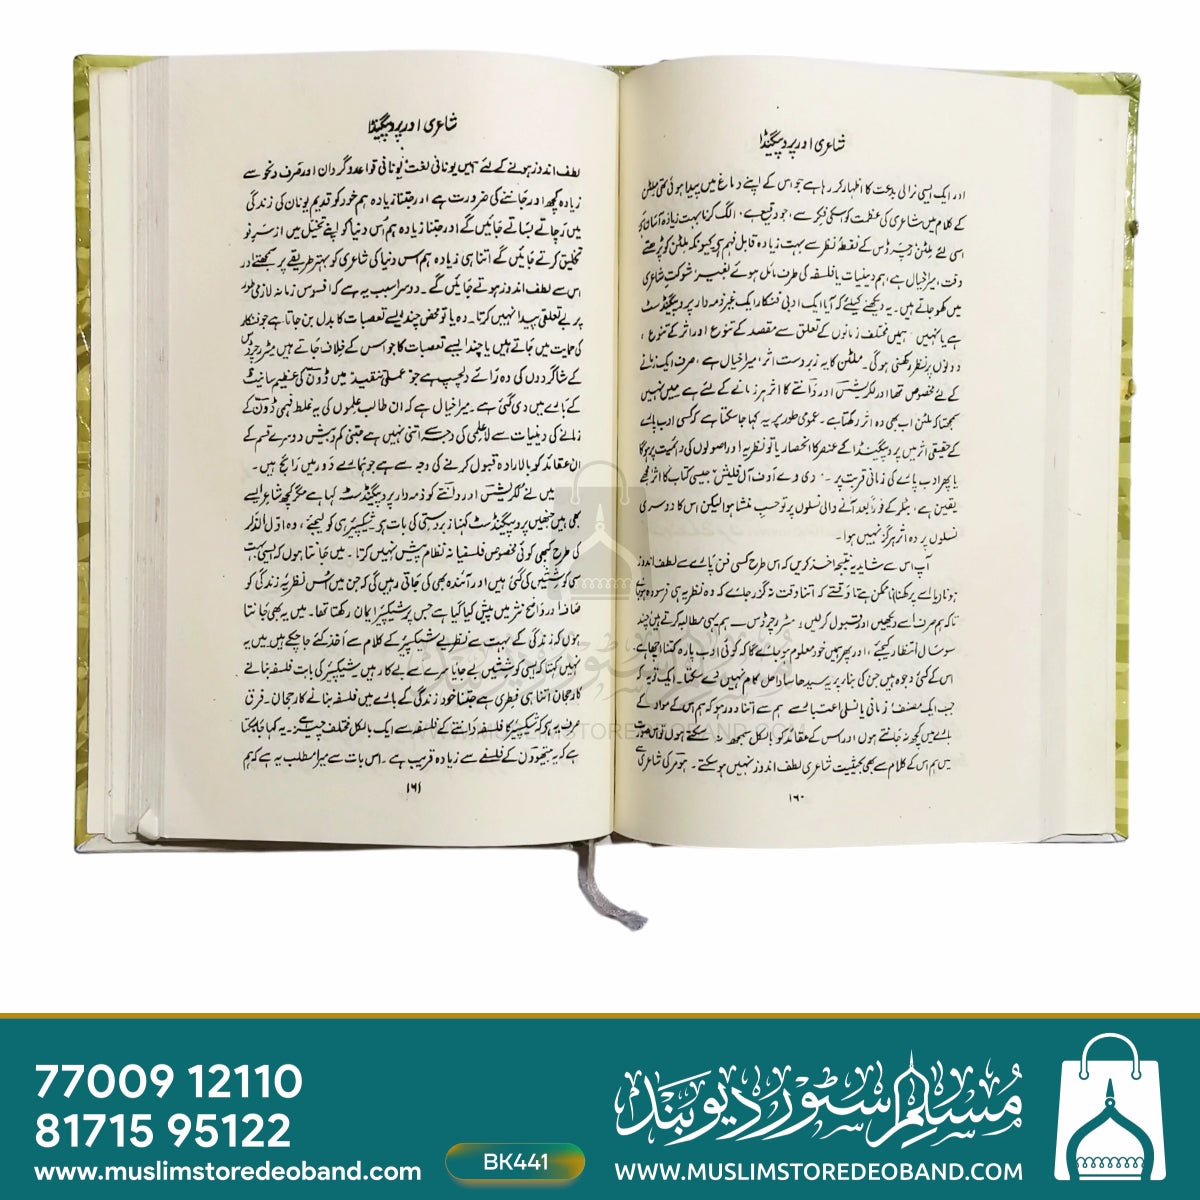 شاعری اور پروپیگنڈا
اور ایک ایسی نرالی بدعت کا اظہار کر رہا ہے جو اس کے اپنے دماغ میں پیدا ہوئی تھی ملٹن
کے کلام میں شاعری کی عظمت کو سکی فکر سے، جو وقیع ہے، الگ کرنا بہت زیادہ آسان ہے
اسی لئے ملٹن رچرڈس کے نقطۂ نظر سے بہت زیادہ قابل فہم ہے کیونکہ ملٹن کو پڑھتے
وقت، میرا خیال ہے، ہم دینیات یا فلسفہ کی طرف مائل ہوئے بغیر شوکتِ شاعری
میں کھو جاتے ہیں۔ یہ دیکھنے کیلئے کہ آیا ایک ادبی فنکار ایک غیر ذمہ دار پروپیگنڈسٹ
ہے یا نہیں ہمیں مختلف زمانوں کے تعلق سے مقصد کے تنوع اور اثر کے تنوع،
دونوں پر نظر رکھنی ہوگی۔ ملٹن کا یہ زبردست اثر، میرا خیال ہے، صرف ایک زمانے
کے لئے مخصوص تھا اور لکریشس اور دانتے کا اثر ہر زمانے کے لئے ہے میں نہیں
سمجھتا کہ ملٹن اب بھی وہ اثر رکھتا ہے۔ عمومی طور پر یہ کہا جا سکتا ہے کہ کسی ادب پارے
کے حقیقی اثر میں پروپیگنڈا کے عنصر کا انحصار یا تو نظریہ اور اصولوں کی دائمیت پر ہوگا
یا پھر ادب پارے کی زمانی قربت پر۔ دی وے اوف آل فلیش، جیسی کتاب کا اثر مجھے
یقین ہے، بٹلر کے فوراً بعد آنے والی نسلوں پر تو حسبِ منشا ہوا لیکن اس کا دوسری
نسلوں پر وہ اثر ہرگز نہیں ہوا۔
آپ اس سے شاید یہ نتیجہ اخذ کریں کہ اس طرح کسی فن پارے سے لطف اندوز
ہونا یا اسے پرکھنا ناممکن ہے تاوقتیکہ اتنا وقت نہ گزر جائے کہ وہ نظریہ ہی فرسودہ ہو جائے
تاکہ ہم صرف اسے دیکھیں اور قبول کرلیں، مسٹر رچرڈس ہم یہی مطالبہ کرتے ہیں چند
سو سال انتظار کیجئے، اور پھر ہمیں خود معلوم ہو جائے گا کہ کوئی ادب پارہ کتنا اچھا ہے
اس کے کئی وجوہ ہیں جن کی بنا پر یہ سیدھا سادا حل کام نہیں دے سکتا۔ ایک تو یہ کہ
جب ایک مصنف زمانی یا نسلی اعتبار سے ہم سے اتنا دور ہو کہ ہم اس کے مواد کے
بارے میں کچھ نہ جانتے ہوں اور اس کے عقائد کو بالکل سمجھ نہ سکتے ہوں تو اس صورت
میں ہم اس کے کلام سے بھی بحیثیت شاعری لطف اندوز نہیں ہو سکتے۔ ہومر کی شاعری سے
۱۶۰
شاعری اور پروپیگنڈا
لطف اندوز ہونے کے لئے ہمیں یونانی لغت، یونانی قواعد و گردان اور صرف و نحو سے
زیادہ کچھ اور جاننے کی ضرورت ہے اور جتنا زیادہ ہم خود کو قدیم یونان کی زندگی
میں رچاتے بساتے جائیں گے اور جتنا زیادہ ہم اُس دنیا کو اپنے تخیل میں از سر نو
تخلیق کرتے جائیں گے اتنا ہی زیادہ ہم اس دنیا کی شاعری کو بہتر طریقے پر سمجھتے اور
اس سے لطف اندوز ہوتے جائیں گے۔ دوسرا سبب یہ ہے کہ افسوس زمانہ لازمی طور
پر بے تعلقی پیدا نہیں کرتا۔ وہ یا تو محض چند ایسے تعصبات کا بدل بن جاتا ہے جو فنکار
کی حمایت میں جاتے ہیں یا چند ایسے تعصبات کا جو اس کے خلاف جاتے ہیں مسٹر رچرڈس
کے شاگردوں کی وہ رائے دلچسپ ہے جو عملی تنقید میں ڈون کی عظیم سانیٹ
کے بارے میں دی گئی ہے۔ میرا خیال ہے کہ ان طالب علموں کی یہ غلط فہمی ڈون کے
زمانے کی دینیات سے لاعلمی کی وجہ سے اتنی نہیں ہے جتنی کم و بیش دوسرے قسم کے
ان عقائد کو بالارادہ قبول کرنے کی وجہ سے ہے جو ہمارے دور میں رائج ہیں۔
میں نے لکریشس اور دانتے کو ذمہ دار پروپیگنڈسٹ کہا ہے مگر کچھ شاعر ایسے
بھی ہیں جنھیں پروپیگنڈسٹ کہنا زبردستی کی بات ہے شیکسپیئر ہی کو لیجئے، وہ اول الذکر
کی طرح کبھی کوئی مخصوص فلسفیانہ نظام پیش نہیں کرتا۔ میں جانتا ہوں کہ ایسی بہت
سی کوششیں کی گئی ہیں اور آئندہ بھی کی جاتی رہیں گی کہ جن میں اُس نظریۂ زندگی کو
صاف اور واضح نثر میں پیش کیا گیا ہے جس پر شیکسپیئر ایمان رکھتا تھا۔ میں یہ بھی جانتا
ہوں کہ زندگی کے بہت سے نظریے شیکسپیئر کے کلام سے اخذ کئے جا چکے ہیں میں یہ
نہیں کہتا کہ ایسی کوششیں بے جا یا سرے سے بے کار ہیں شیکسپیئر کی بات فلسفہ بنانے
کا رجحان اتنا ہی فطری ہے جتنا خود زندگی کے بارے میں فلسفہ بنانے کا رجحان۔ فرق
صرف یہ ہے کہ شیکسپیئر کا فلسفہ دانتے کے فلسفہ سے ایک بالکل مختلف چیز ہے۔ یہ کہا جا سکتا
ہے کہ یہ بیتھوون کے فلسفے سے زیادہ قریب ہے۔ اس بات سے میرا مطلب یہ ہے کہ ہم
۱۶۱
مسلم سٹور دیوبند
WWW.MUSLIMSTOREDEOBAND.COM
77009 12110
81715 95122
www.muslimstoredeoband.com
BK441
مسلم سٹور دیوبند
WWW.MUSLIMSTOREDEOBAND.COM